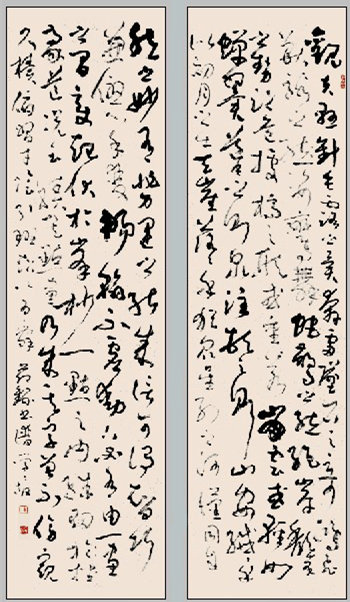 觀夫懸針垂露之異奔雷墜石之奇鴻飛
獸駭之姿鸞舞蛇驚之態絕岸頹峰
之勢臨危據槁之形或重若崩雲或輕如
蟬翼導之則泉注頓之則山安纖纖乎
似初月之出天崖落落乎猶眾星之列河漢同自
然之妙有非力運之能成信可謂智巧
兼優心手雙暢翰不虛動下必有由一畫
之間變起伏於峰杪一點之內殊衄挫於
毫芒況云積其點畫乃成其字曾不傍窺
尺牘俯習寸陰引班超以為辭 節錄書譜